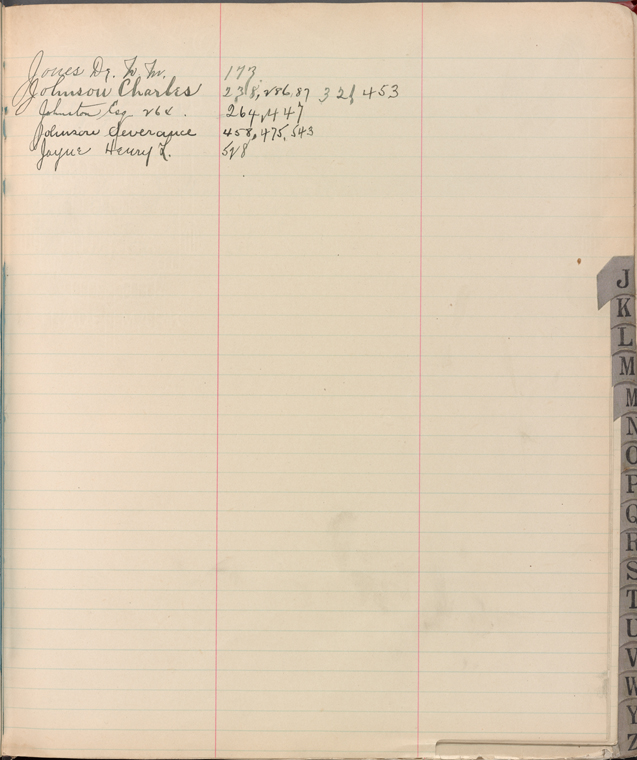 Jones Dr. W. M. 173
Johnson Charles 238, 286, 87 321 453
Johnston Esq 264, 447
Johnson Severance 458, 475, 543
Jayne Henry L. 528
J
K
L
M
M
N
O
P
Q
R
S
T
U
V
W
Y
Z